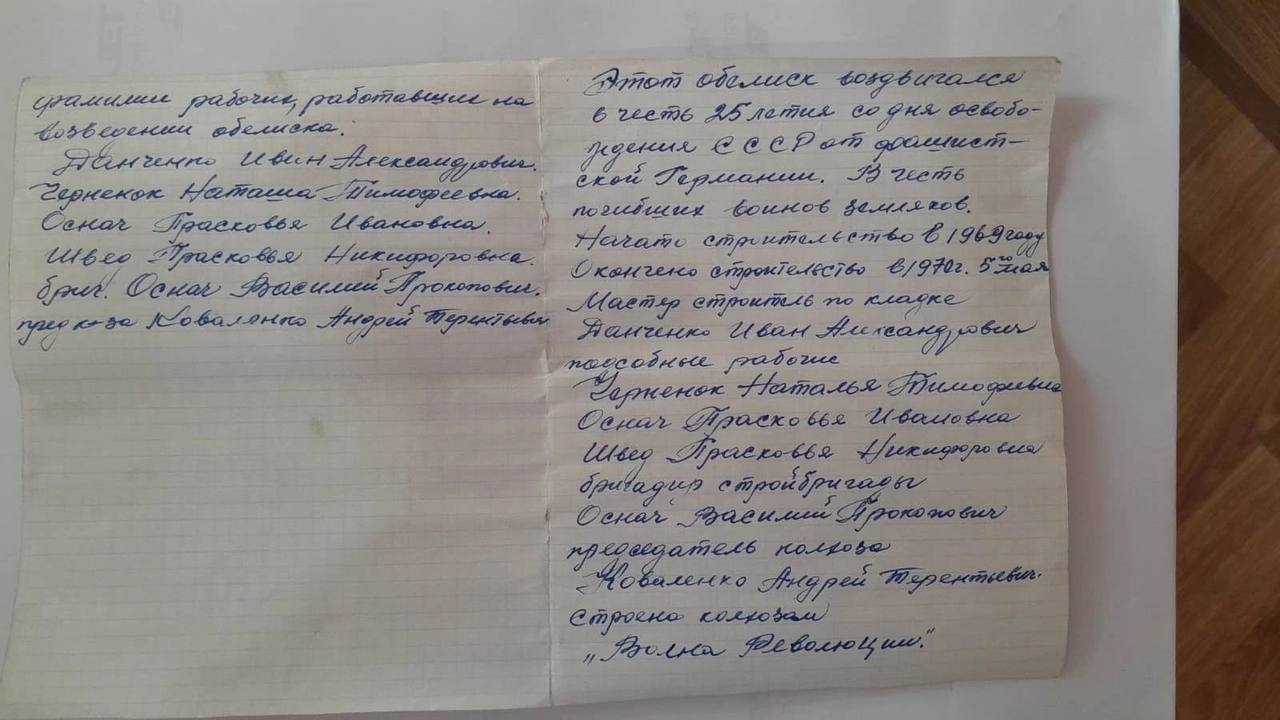 фамилии рабочих, работавших на
возведении обелиска.
Данченко Иван Александрович.
Черненок Наташа Тимофеевна.
Оснач Прасковья Ивановна.
Швед Прасковья Никифоровна.
бриг. Оснач Василий Прокопович.
пред к-за Коваленко Андрей Терентьевич
Этот обелиск воздвигался
в честь 25 летия со дня освобо-
ждения СССР от фашист-
ской Германии. В честь
погибших воинов земляков.
Начато строительство в 1969 году
Окончено строительство в 1970 г. 5го мая
Мастер строитель по кладке
Данченко Иван Александрович
подсобные рабочие
Черненок Наталья Тимофеевна
Оснач Прасковья Ивановна
Швед Прасковья Никифоровна
бригадир стройбригады
Оснач Василий Прокопович
председатель колхоза
Коваленко Андрей Терентьевич.
строена колхозом
„Волна Революции."